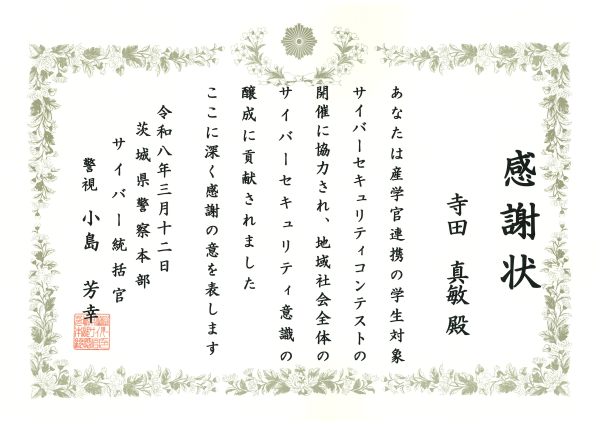 感謝状
寺田 真敏 殿
あなたは産学官連携の学生対象
サイバーセキュリティコンテストの
開催に協力され、地域社会全体の
サイバーセキュリティ意識の
醸成に貢献されました
ここに深く感謝の意を表します
令和八年三月十二日
茨城県警察本部
サイバー統括官
警視 小島 芳幸